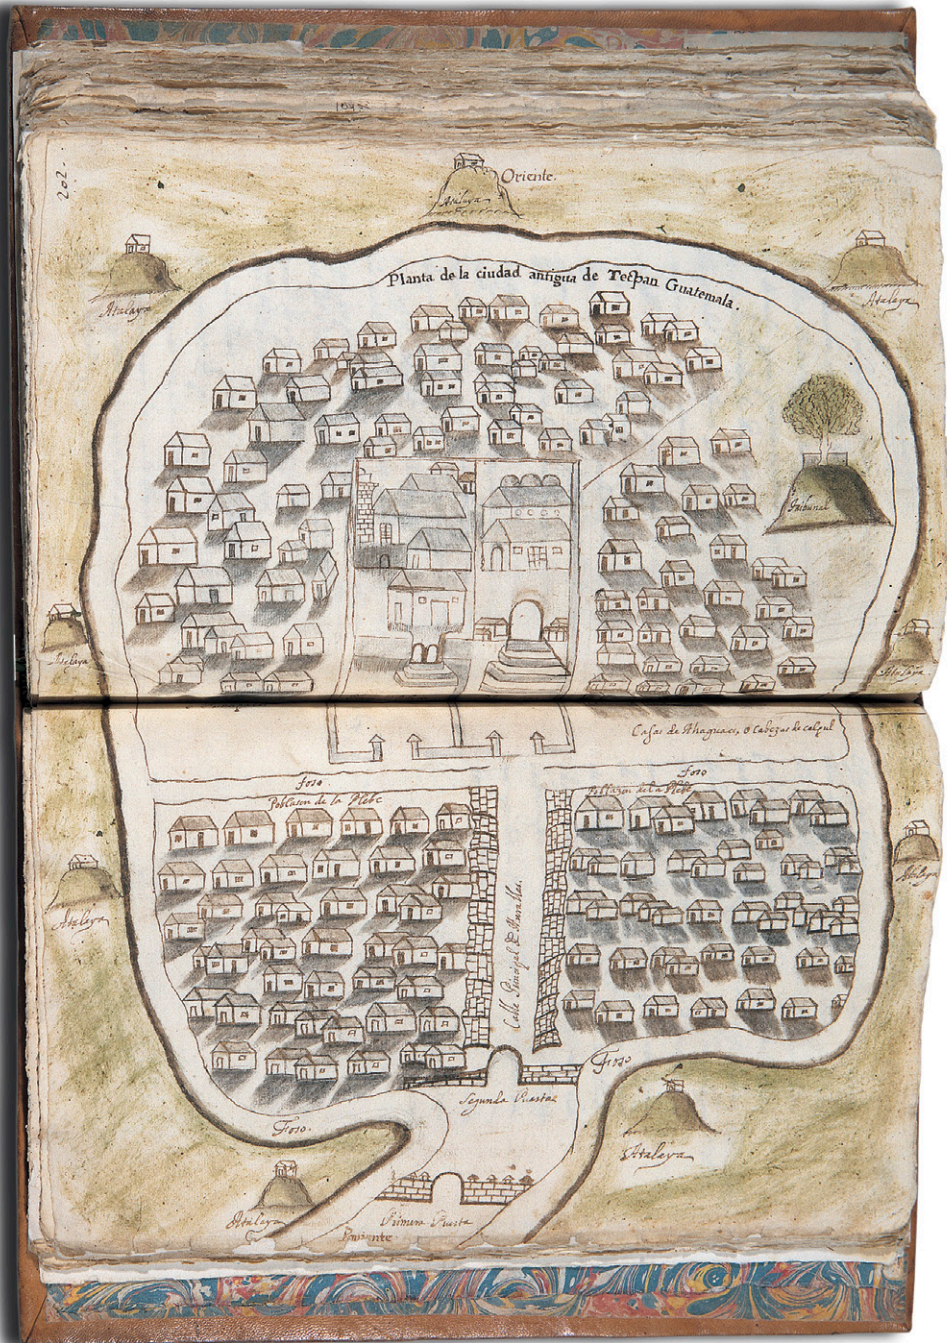 202.
Oriente.
Atalaya
Atalaya
Atalaya
Planta de la ciudad antigua de Tecpan Guatemala.
Tribunal
Atalaya
Atalaya
Casas de Ahaguaes, o Cabezas de calpul
foso
foso
Poblazon de la Plebe
Poblazon de la Plebe
Atalaya
Atalaya
Calle Principal de
Foso
Segunda Puerta
Foso.
Atalaya
Atalaya
Primera Puerta
Poniente